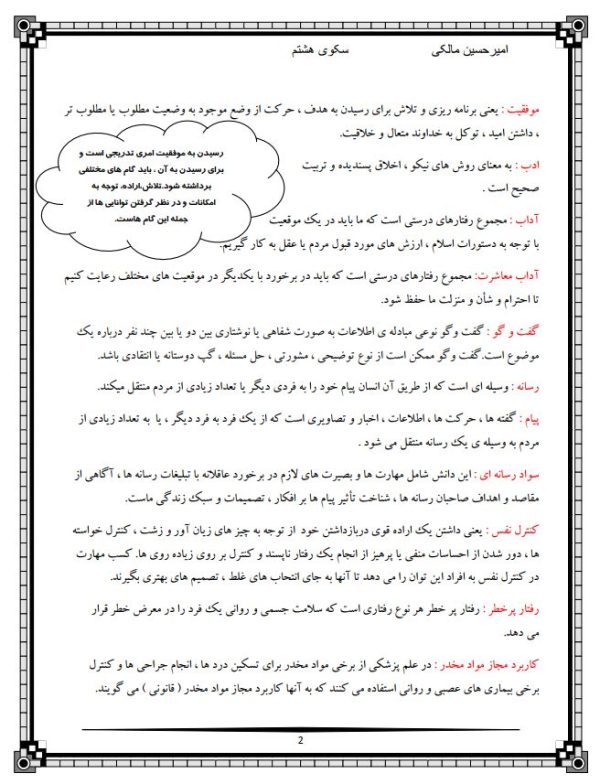 امیرحسین مالکی سکوی هشتم
موفقیت : یعنی برنامه ریزی و تلاش برای رسیدن به هدف ، حرکت از وضع موجود به وضعیت مطلوب یا مطلوب تر
، داشتن امید ، توکل به خداوند متعال و خلاقیت.
رسیدن به موفقیت امری تدریجی است و
برای رسیدن به آن ، باید گام های مختلفی
برداشته شود.تلاش،اراده، توجه به
امکانات و در نظر گرفتن توانایی ها از
جمله این گام هاست.
ادب : به معنای روش های نیکو ، اخلاق پسندیده و تربیت
صحیح است .
آداب : مجموع رفتارهای درستی است که ما باید در یک موقعیت
با توجه به دستورات اسلام ، ارزش های مورد قبول مردم یا عقل به کار گیریم.
آداب معاشرت: مجموع رفتارهای درستی است که باید در برخورد با یکدیگر در موقعیت های مختلف رعایت کنیم
تا احترام و شأن و منزلت ما حفظ شود.
گفت و گو : گفت وگو نوعی مبادله ی اطلاعات به صورت شفاهی یا نوشتاری بین دو یا بین چند نفر درباره یک
موضوع است.گفت وگو ممکن است از نوع توضیحی ، مشورتی ، حل مسئله ، گپ دوستانه یا انتقادی باشد.
رسانه : وسیله ای است که از طریق آن انسان پیام خود را به فردی دیگر یا تعداد زیادی از مردم منتقل میکند.
پیام : گفته ها ، حرکت ها ، اطلاعات ، اخبار و تصاویری است که از یک فرد به فرد دیگر ، یا به تعداد زیادی از
مردم به وسیله ی یک رسانه منتقل می شود .
سواد رسانه ای : این دانش شامل مهارت ها و بصیرت های لازم در برخورد عاقلانه با تبلیغات رسانه ها ، آگاهی از
مقاصد و اهداف صاحبان رسانه ها ، شناخت تأثیر پیام ها بر افکار ، تصمیمات و سبک زندگی ماست.
کنترل نفس : یعنی داشتن یک اراده قوی دربازداشتن خود از توجه به چیز های زیان آور و زشت ، کنترل خواسته
ها ، دور شدن از احساسات منفی یا پرهیز از انجام یک رفتار ناپسند و کنترل بر روی زیاده روی ها. کسب مهارت
در کنترل نفس به افراد این توان را می دهد تا آنها به جای انتحاب های غلط ، تصمیم های بهتری بگیرند.
رفتار پرخطر : رفتار پر خطر هر نوع رفتاری است که سلامت جسمی و روانی یک فرد را در معرض خطر قرار
می دهد.
کاربرد مجاز مواد مخدر : در علم پزشکی از برخی مواد مخدر برای تسکین درد ها ، انجام جراحی ها و کنترل
برخی بیماری های عصبی و روانی استفاده می کنند که به آنها کاربرد مجاز مواد مخدر ( قانونی ) می گویند.
2